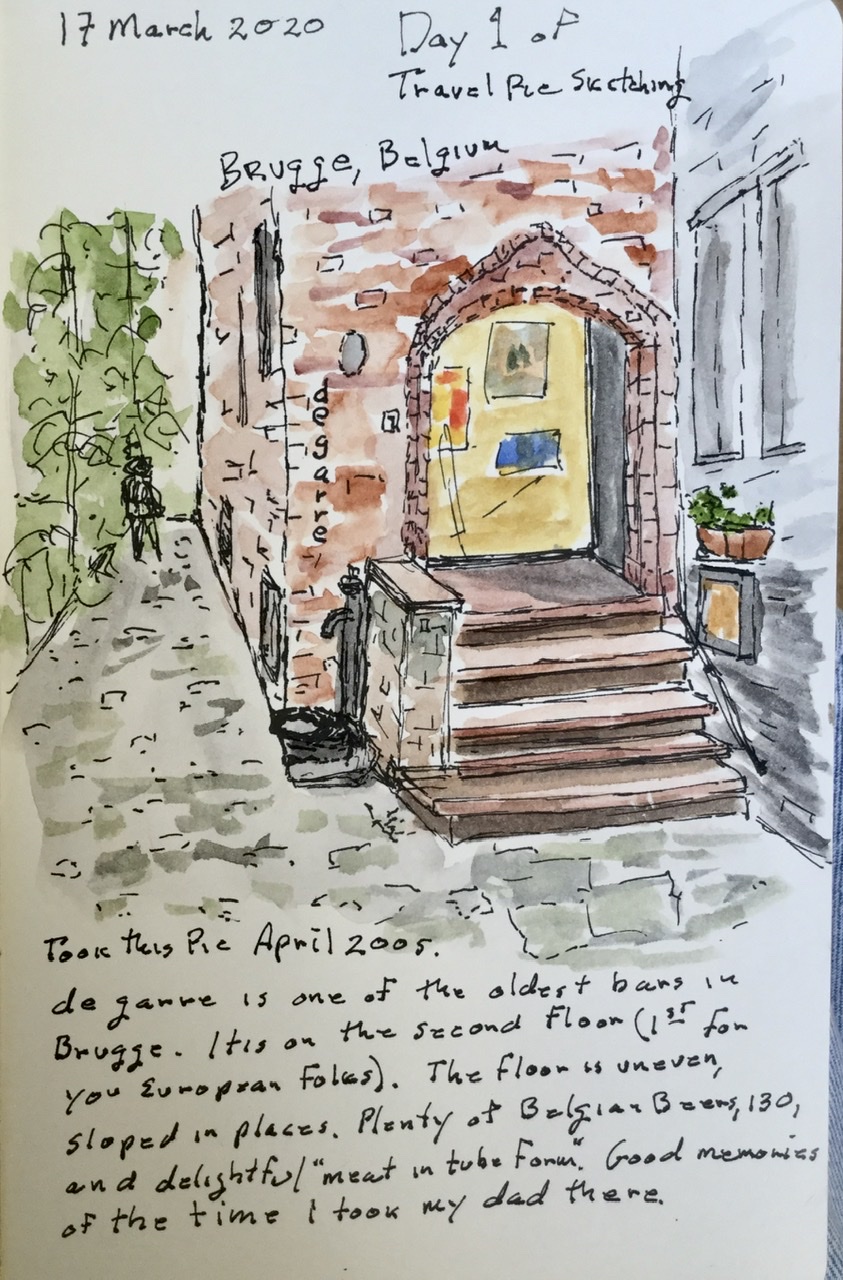 17 March 2020
Day 1 of
Travel Pic Sketching
Brugge, Belgium
degarre
Took this Pic April 2005.
de garre is one of the oldest bars in
Brugge. It is on the second floor (1st for
you European folks). The floor is uneven,
sloped in places. Plenty of Belgian Beers, 130,
and delightful "meat in tube form". Good memories
of the time I took my dad there.